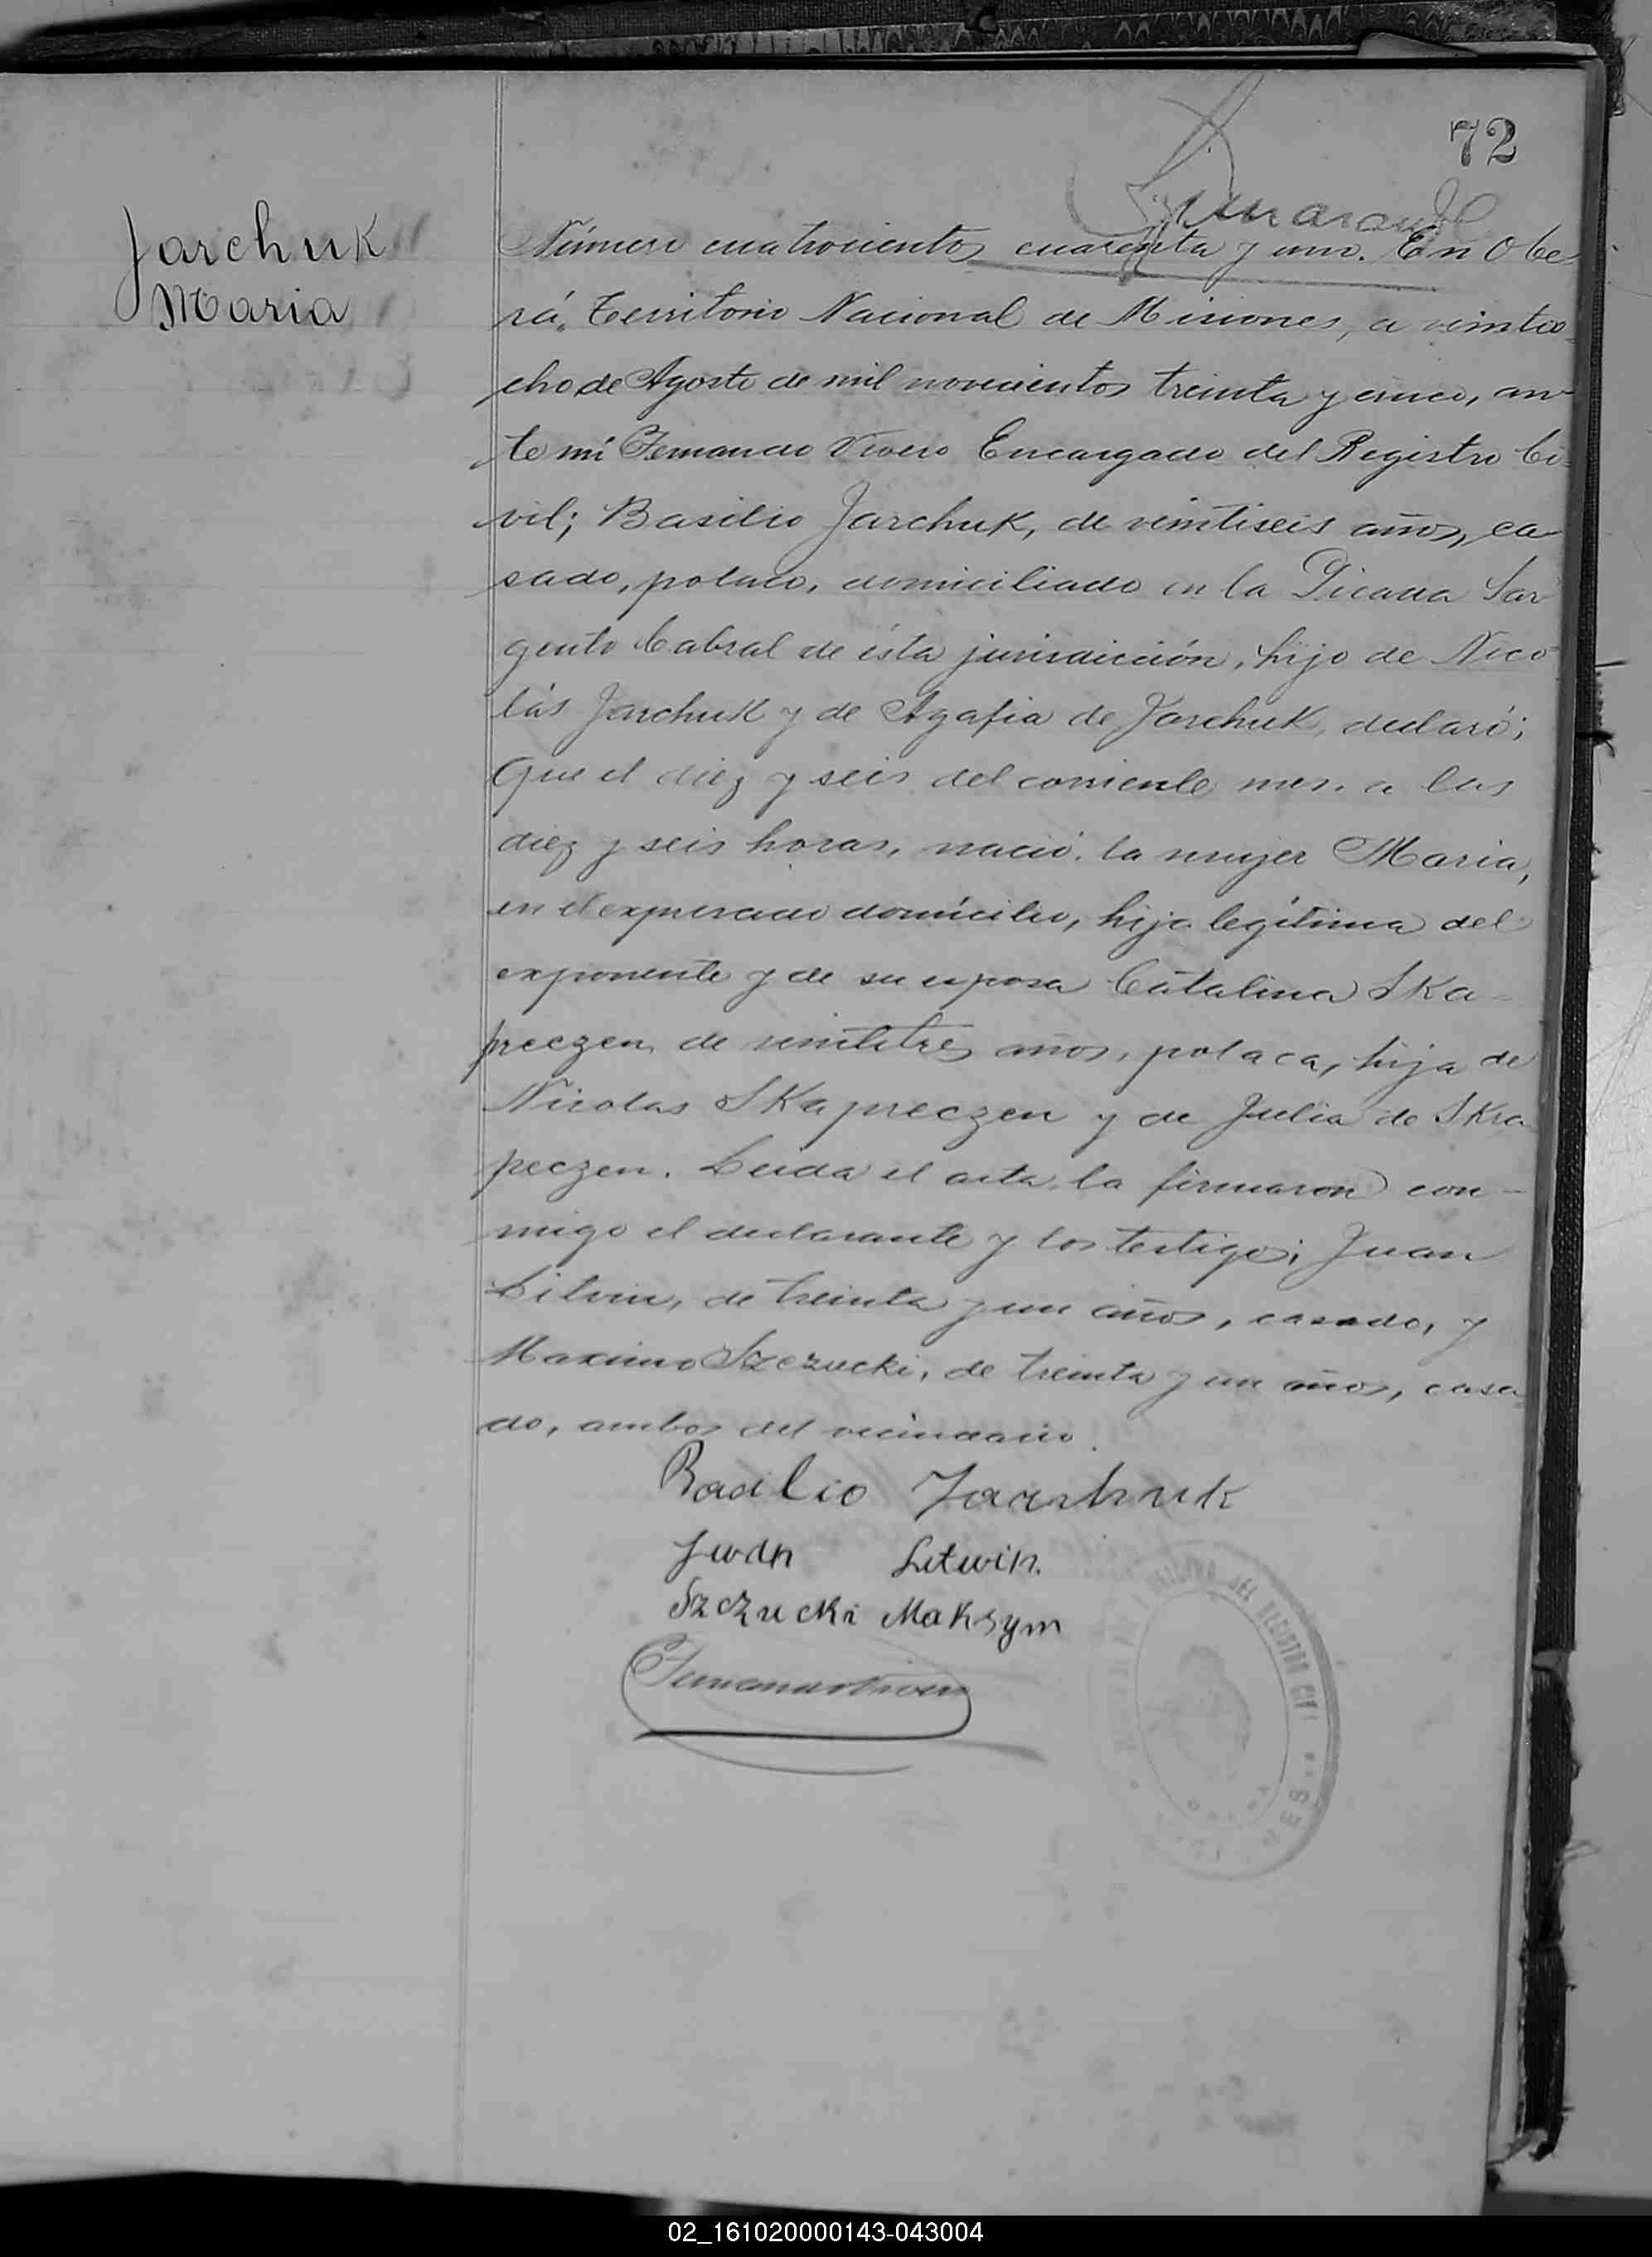 72
Jarchuk
Maria
Número cuatrocientos cuarenta y uno. En Obe-
rá, Territorio Nacional de Misiones, a veintio-
cho de Agosto de mil novecientos treinta y cinco, an-
te mí Fernando Vivero Encargado del Registro Ci-
vil; Basilio Jarchuk, de veintiseis años, ca-
sado, polaco, domiciliado en la Picada Sar-
gento Cabral de ésta jurisdicción, hijo de Nico-
lás Jarchuk y de Agafia de Jarchuk, declaró;
Que el diez y seis del corriente mes, a las
diez y seis horas, nació, la mujer Maria,
en el expresado domicilio, hija legítima del
exponente y de su esposa Catalina Ska-
preczen de veintitres años, polaca, hija de
Nicolas Skapreczen y de Julia de Skra
peczen. Leida el acta, la firmaron con-
migo el declarante y los testigos; Juan
Litvin, de treinta y un años, casado, y
Maximo Szczucki, de treinta y un años, casa
do, ambos del vecindario.
Basilio Jaarhuk
Jwan Litwin.
Szczucki Maksym
Fernando Vivero
DEL REGISTRO CIVIL
02_161020000143-043004